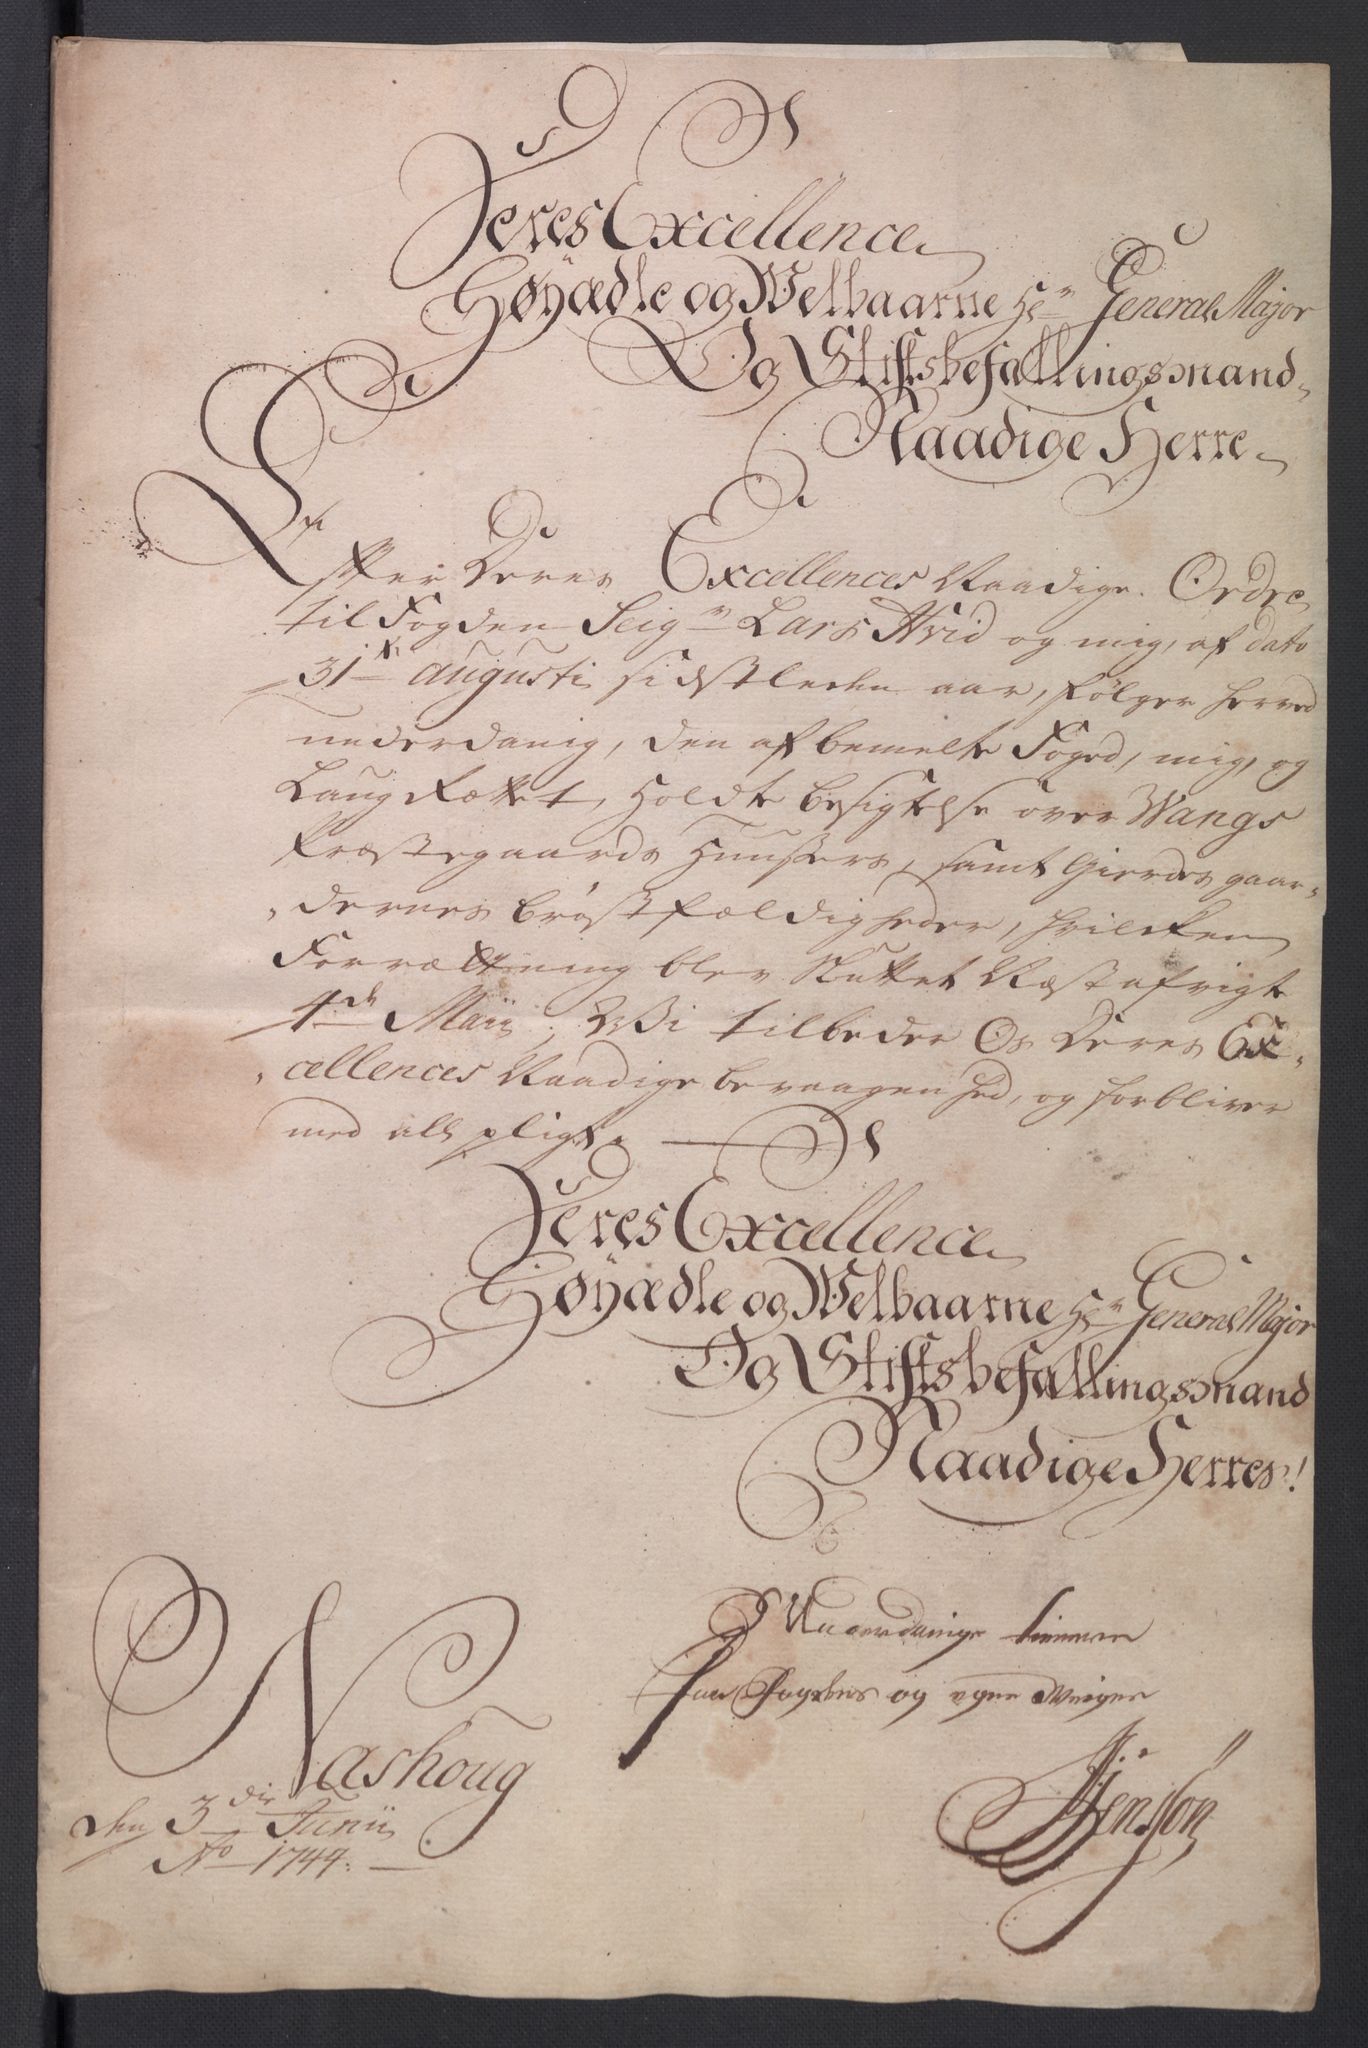 Deres Excellence
Høyædle og Welbaarne Hr General Major
Og Stiftsbefallingsmand
Naadige Herre
Efter Deres Excellences Naadige Ordre
til Fogden Seigr Lars Hvid og mig, af dato
31te augusti sidstleden aar, følger herved
underdanig, den af bemelte Foged, mig, og
Laug Rættet, holdte besigtelse over Wangs
Præstegaards Huußers, samt Gierdes gaar-
dernes brøstfældigheder, hvilcken
Forrætning blev sluttet Næstafvigte
4de Maii, Wi tilbeder Os Deres Ex-
cellences Naadige bevaagenhed, og forbliver
med all pligt
Deres Excellence
Høyædle og Welbaarne Hr General Major
Og Stiftsbefallingsmand
Naadige Herres!
Underdanige tienere
paa Fogdens og egne Weigne
Nashoug
den 3die Junii
Ao 1744.